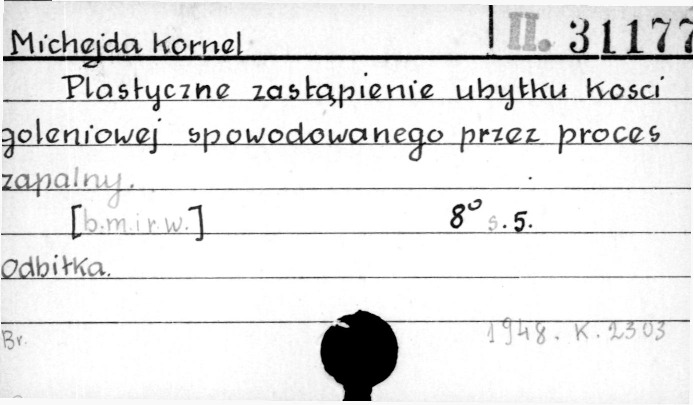 Michejda Kornel II. 31177
Plastyczne zastąpienie ubytku kości
goleniowej spowodowanego przez proces
zapalny.
[b.m.i r.w.] 8° s. 5.
Odbitka.
Br. 1948. K. 2303